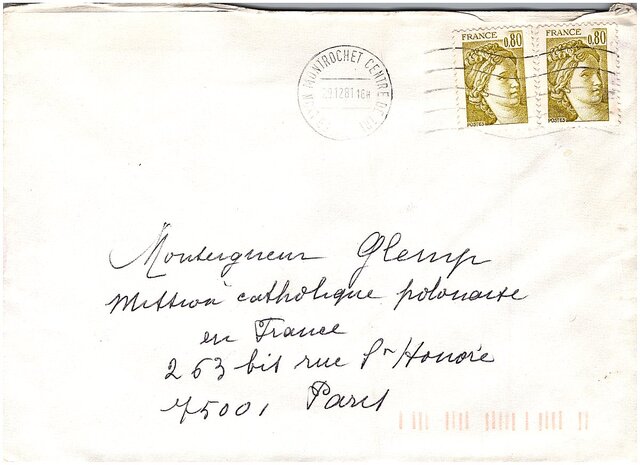 FRANCE 0,80 FRANCE 0,80
POSTES POSTES
MONTROCHET CENTRE DE TRI
29 12 81 16H
Monseigneur Glemp
Mission catholique polonaise
en France
263 bis rue St Honoré
75001 Paris